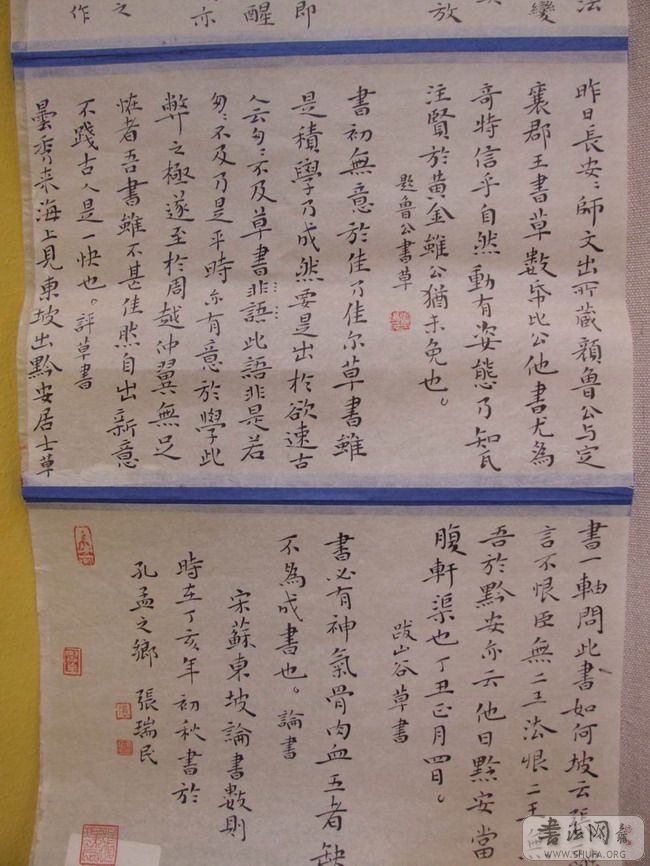 法
變
放
即
醒
亦
之
作
昨日長安〻師文出所藏顏魯公与定
襄郡王書草數帋比公他書尤為
奇特信乎自然動有姿態乃知瓦
注賢於黃金雖公猶未免也。
題魯公書草
書初無意於佳乃佳尔草書雖
是積學乃成然要是出於欲速古
人云匆〻不及草書非語此語非是若
匆〻不及乃是平時亦有意於學此
弊之極遂至於周越仲翼無足
怪者吾書雖不甚佳然自出新意
不踐古人是一快也。評草書
曇秀来海上見東坡出黔安居士草
書一軸問此書如何坡云張
言不恨臣無二王法恨二王
吾於黔安亦云他日黔安當
腹軒渠也丁丑正月四日。
跋山谷草書
書必有神氣骨肉血五者缺
不為成書也。論書
宋蘇東坡論書數則
時在丁亥年初秋書於
孔孟之鄉 張瑞民
书法网
WWW.SHUFA.ORG